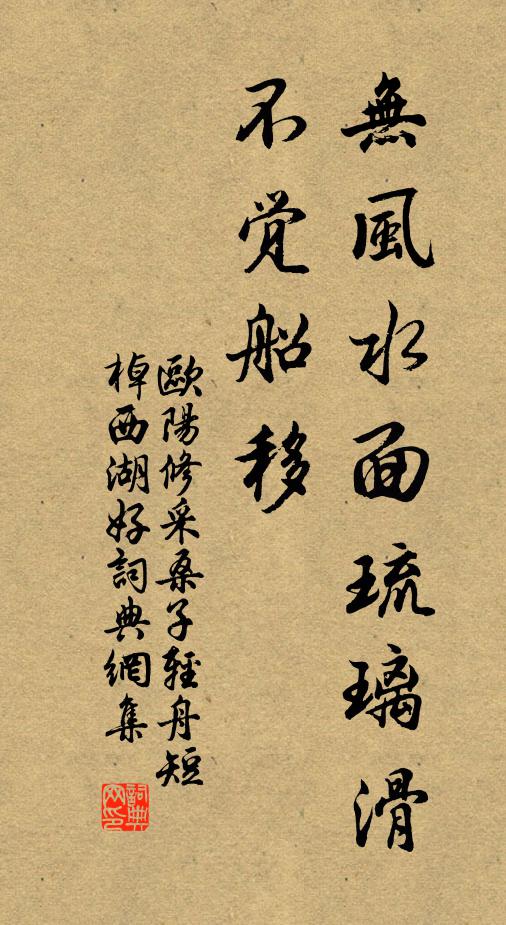 無風水面琉璃滑
不觉船移
歐陽修采桑子輕舟短
棹西湖好詞典網集
詞典网印